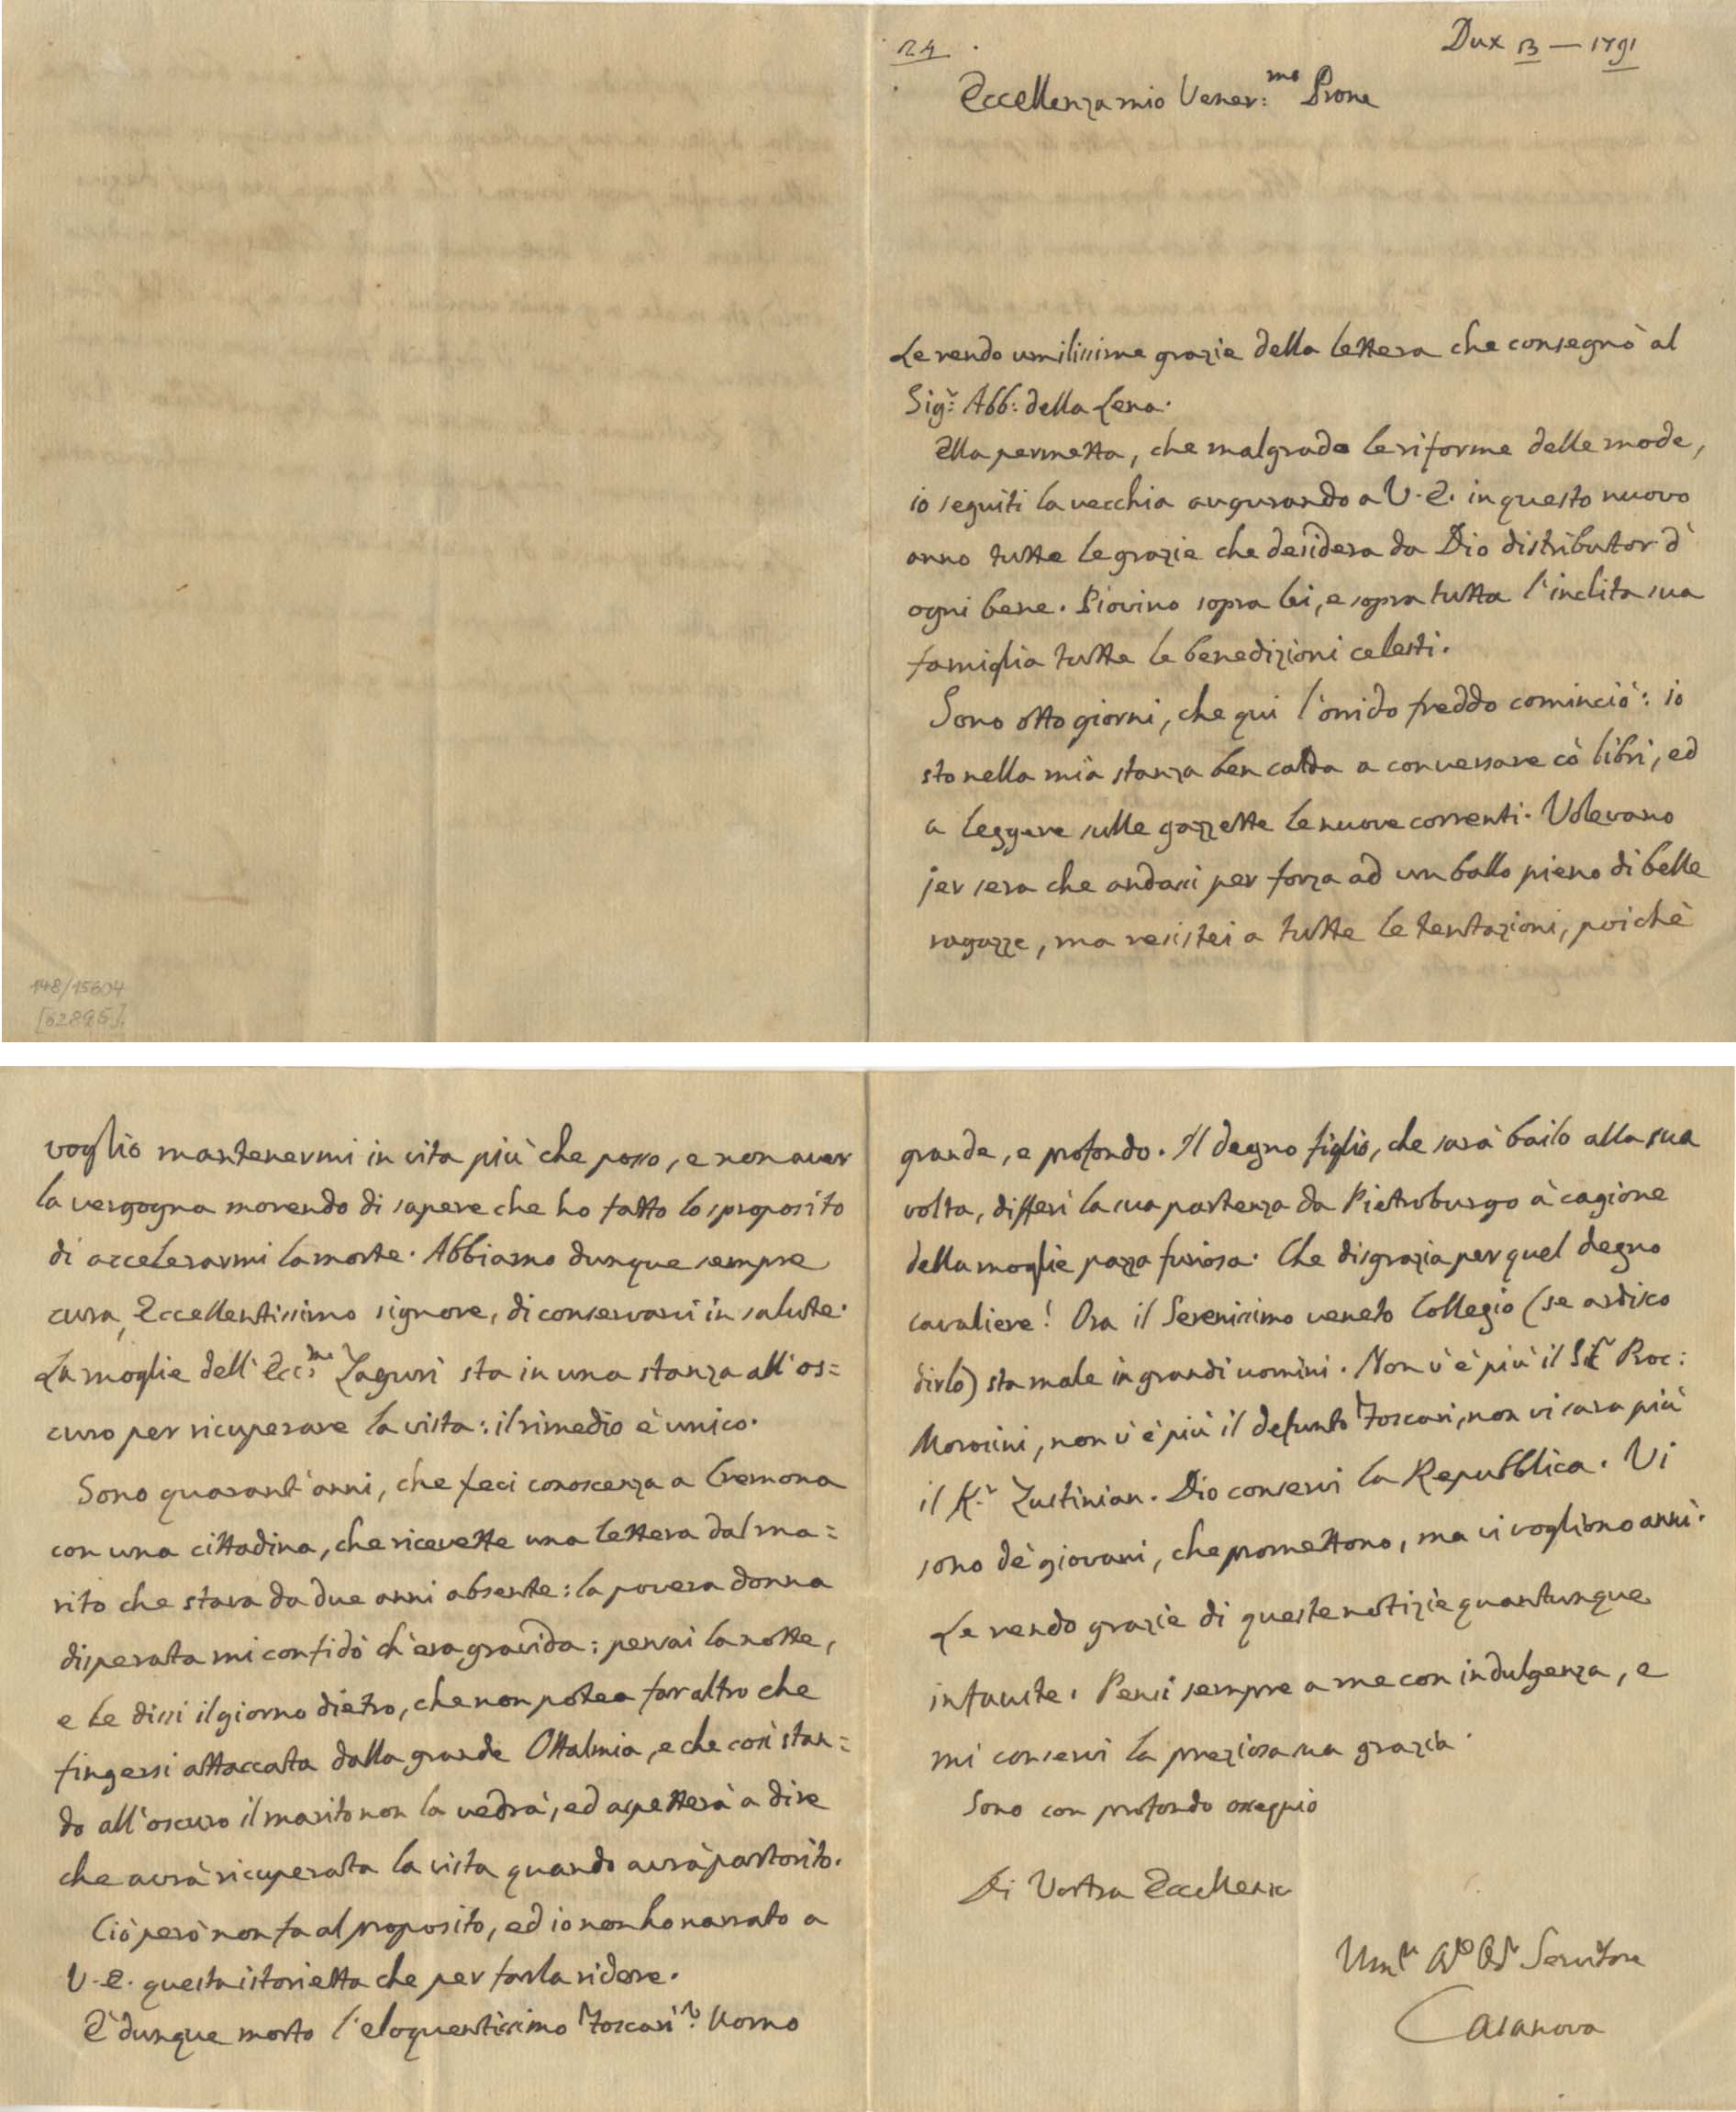 24.
Dux 13 — 1791
Eccellenza mio Vener:mo Prone
Le rendo umilissime grazie della lettera che consegnò al
Sigr: Abb: della Lena.
Ella permetta, che malgrado le riforme delle mode,
io seguiti la vecchia augurando a V. E. in questo nuovo
anno tutte le grazie che desidera da Dio distributor d'
ogni bene. Piovino sopra lei, e sopra tutta l'inclita sua
famiglia tutte le benedizioni celesti.
Sono otto giorni, che qui l'orrido freddo cominciò: io
sto nella mia stanza ben calda a conversare cò libri, ed
a leggere sulle gazzette le nuove correnti. Volevano
jer sera che andassi per forza ad un ballo pieno di belle
ragazze, ma resistei a tutte le tentazioni, poichè
148/15604
[62895].
voglio mantenermi in vita più che posso, e non aver
la vergogna morendo di sapere che ho fatto lo sproposito
di accelerarmi la morte. Abbiamo dunque sempre
cura, Eccellentissimo signore, di conservarci in salute.
La moglie dell'Ecc:mo Zaguri sta in una stanza all'os=
curo per ricuperare la vista: il rimedio è unico.
Sono quarant'anni, che feci conoscenza a Cremona
con una cittadina, che ricevette una lettera dal ma=
rito che stava da due anni absente: la povera donna
disperata mi confidò ch'era gravida: pensai la notte,
e le dissi il giorno dietro, che non potea far altro che
fingersi attaccata dalla grande Ottalmia, e che così stan=
do all'oscuro il marito non la vedrà, ed aspetterà a dire
che avrà ricuperata la vista quando avrà partorito.
Ciò però non fa al proposito, ed io non ho narrato a
V. E. questa istorietta che per farla ridere.
E' dunque morto l'eloquentissimo Foscari? Uomo
grande, e profondo. Il degno figlio, che sarà bailo alla sua
volta, differì la sua partenza da Pietroburgo à cagione
della moglie pazza furiosa. Che disgrazia per quel degno
cavaliere! Ora il Serenissimo veneto Collegio (se ardisco
dirlo) sta male in grandi uomini. Non v'è più il Sr Proc:
Morosini, non v'è più il defunto Foscari, non vi sara più
il Kr. Zustinian. Dio conservi la Repubblica. Vi
sono dè giovani, che promettono, ma vi vogliono anni.
Le rendo grazie di queste notizie quantunque
infauste. Pensi sempre a me con indulgenza, e
mi conservi la preziosa sua grazia.
Sono con profondo ossequio
Di Vostra Eccellenza
Servitore
Casanova